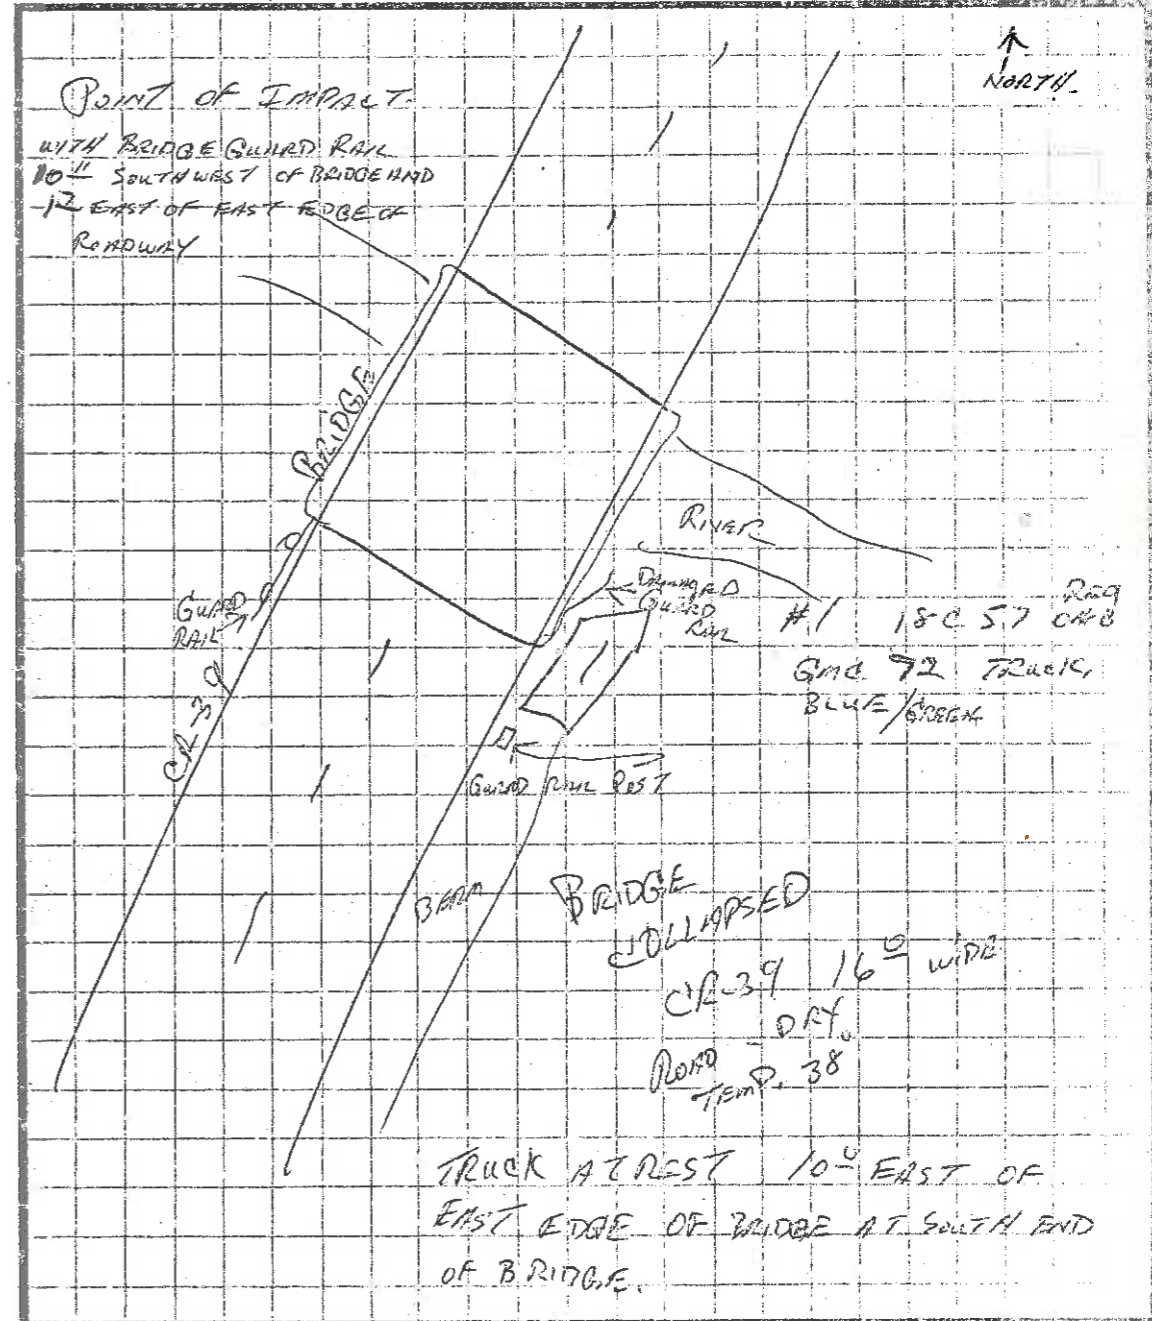 NORTH.
POINT OF IMPACT.
WITH BRIDGE GUARD RAIL
SOUTHWEST OF BRIDGE AND
EAST OF EAST EDGE OF
ROADWAY
BRIDGE
GUARD
RAIL
CR-39
RIVER
DAMAGED
GUARD
RAIL
#1 18C 57
GMC 72 TRUCK,
BLUE/GREEN
GUARD RAIL POST
BERM
BRIDGE
COLLAPSED
CR-39 16 WIDE
ROAD - DRY.
TEMP. 38
TRUCK AT REST EAST OF
EAST EDGE OF BRIDGE AT SOUTH END
OF BRIDGE.